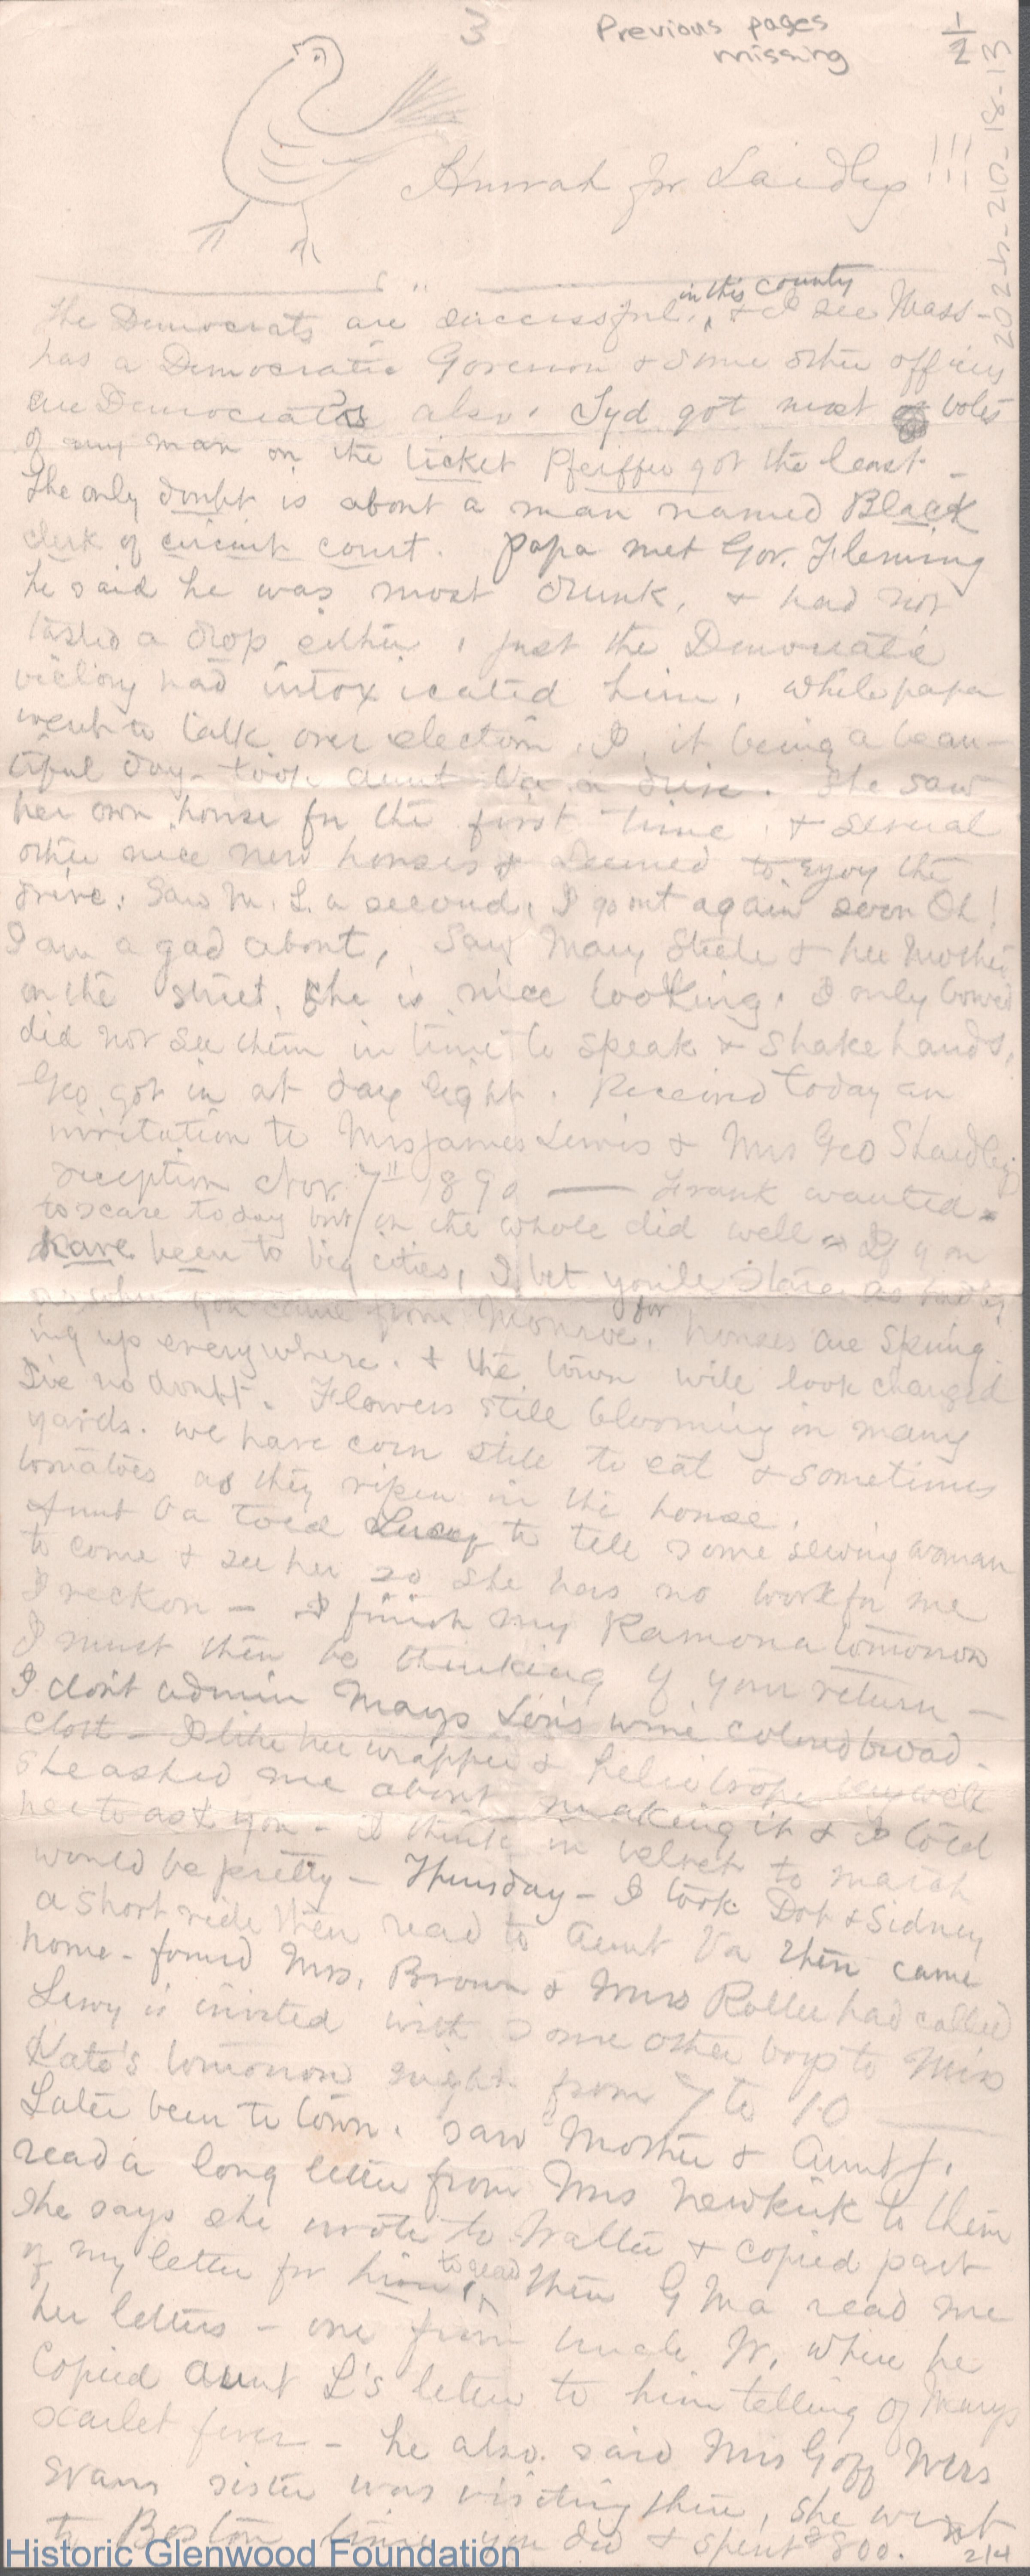 3
Previous pages
missing
1/2
2024-210-18-13
Hurrah for Laidley !!!
The Democrats are successful in this county, & I see Mass-
has a Democratic Governor & some other officers
are Democrats also. Syd got most votes
of any man on the ticket Pfeiffer got the least -
The only doubt is about a man named Black
clerk of circuit court. Papa met Gov. Fleming
he said he was most drunk, & had not
tasted a drop either, just the Democratic
victory had intoxicated him. While papa
went to talk over election, I, it being a beau-
tiful day - took Aunt Va a drive. She saw
her own house for the first time, & several
other nice new houses & seemed to enjoy the
drive. Saw M. L. a second. I go out again soon Oh!
I am a gad about, Saw Mary Steele & her Mother
on the street, she is nice looking. I only bowed
did not see them in time to speak & shake hands,
Geo got in at day light. Received today an
invitation to Mrs James Lewis & Mrs Geo S Laidley's
reception Nov. 7" 1890 — Frank wanted
to scare today but on the whole did well - If you
have been to big cities, I bet you'll stare as badly
as when you came from Monroe, for houses are spring-
ing up everywhere. & the town will look changed
I've no doubt. Flowers still blooming in many
yards. we have corn still to eat & sometimes
tomatoes as they ripen in the house.
Aunt Va told Lucy to tell some sewing woman
to come & see her so she has no work for me
I reckon - I finish my Ramona tomorrow
I must then be thinking of your return -
I don't admire Mays Lou's wine colored broad-
cloth - I like her wrapper & heliotrope very well
She asked me about making it & I told
her to ask you - I think in velvet to match
would be pretty - Thursday - I took Dot & Sidney
a short ride then read to Aunt Va then came
home - found Mrs. Brown & Miss Roller had called
Lewy is invited with some other boys to Miss
Kate's tomorrow night from 7 to 10 —
Later been to town. saw Mother & Aunt J.
read a long letter from Mrs Newkirk to them
She says she wrote to Walter & copied part
of my letter for him to read, Then G Ma read me
her letters - one from Uncle W, where he
copied Aunt L's letter to him telling of Marys
scarlet fever - he also said Mrs Goff Mrs
Evans sister was visiting there, she went
to Boston since you did & spent $800.
2/4
Historic Glenwood Foundation